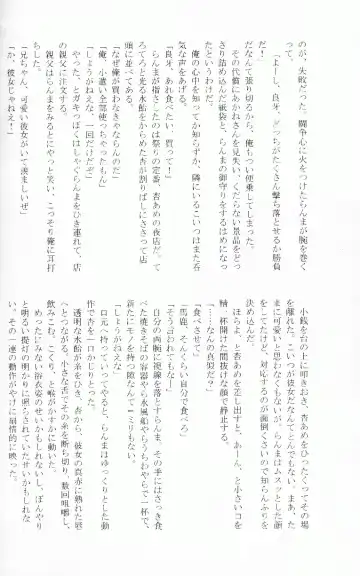 のが、失敗だった。闘争心に火をつけたらんまが腕を巻く
って、
「よーし、良牙、どっちがたくさん撃ち落とせるか勝負
だ！」
だなんて張り切るから、俺もつい便乗してしまった。
その代償にあかねさんを見失い、くだらない景品をどっ
さり詰め込んだ紙袋と、らんまの御守りをするはめになっ
たというわけだ。
俺の心中を知ってか知らずか、隣にいるこいつはまた呑
気な声をあげる。
「良牙、あれ食べたい、買って！」
らんまが指さしたのは祭りの定番、杏あめの店だった。
てろてろと光る水飴をからめた杏が割りばしにささって店
頭に並べてある。
「なぜ俺が買わなきゃならんのだ」
「俺、小遣い全部使っちゃったもん」
「しょうがねえな、一回だけだぞ」
やった、とガキっぽくはしゃぐらんまをひき連れて、店
の親父に注文する。
親父はらんまをみるとにやっと笑い、こっそり俺に耳打
ちした。
「兄ちゃん、可愛い彼女がいて羨ましいぜ」
「か、彼女じゃねえ！」
小銭を台の上に叩きおき、杏あめをひったくってその場
を離れた。こいつが彼女だなんてとんでもない。まあ、た
まに可愛いと思わなくもないが。らんまはムスッとした顔
をしてたけど、対応するのが面倒くさいので知らんぷりを
決めこんだ。
ほらよ、と杏あめを差し出すと、あーん、と小さいコを
精一杯開けた間抜けな顔で静止する。
「……なんの真似だ？」
「食べさせて」
「馬鹿、そんくらい自分で食べろ」
「そう言われてもなー」
自分の両腕に視線を落とすらんま。その手にはさっき食
べた焼きそばの容器やら水風船やらうちわやらで一杯で、
新たにモノを持つ隙なんて一ミリもない。
「しょうがねえな」
口元へ持っていってやると、らんまはゆっくりとした動
作で杏を一口かじりとった。
透明な水飴が糸をひき、杏から、彼女の真赤に熟れた唇
へとつながる。小さな舌でその糸を断ち切り、数回咀嚼し、
飲みこむ。こくり、と喉がかすかに動いた。
めったにない浴衣姿のせいかもしれないし、ぼんやり
と明るい提灯の明かりに照らされていたせいかもしれな
い。その一連の動作がやけに扇情的に映った。